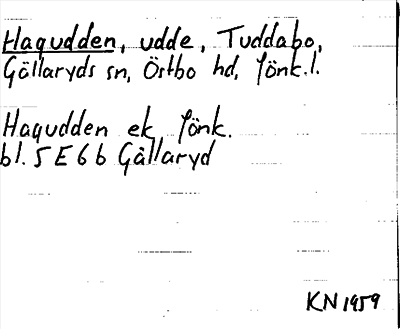 Haqudden, udde, Tuddabo,
Gällaryds sn, Östbo hd, Jönk.l.
Haqudden ek, Jönk.
bl. 5 E 6 b Gällaryd
KN 1959